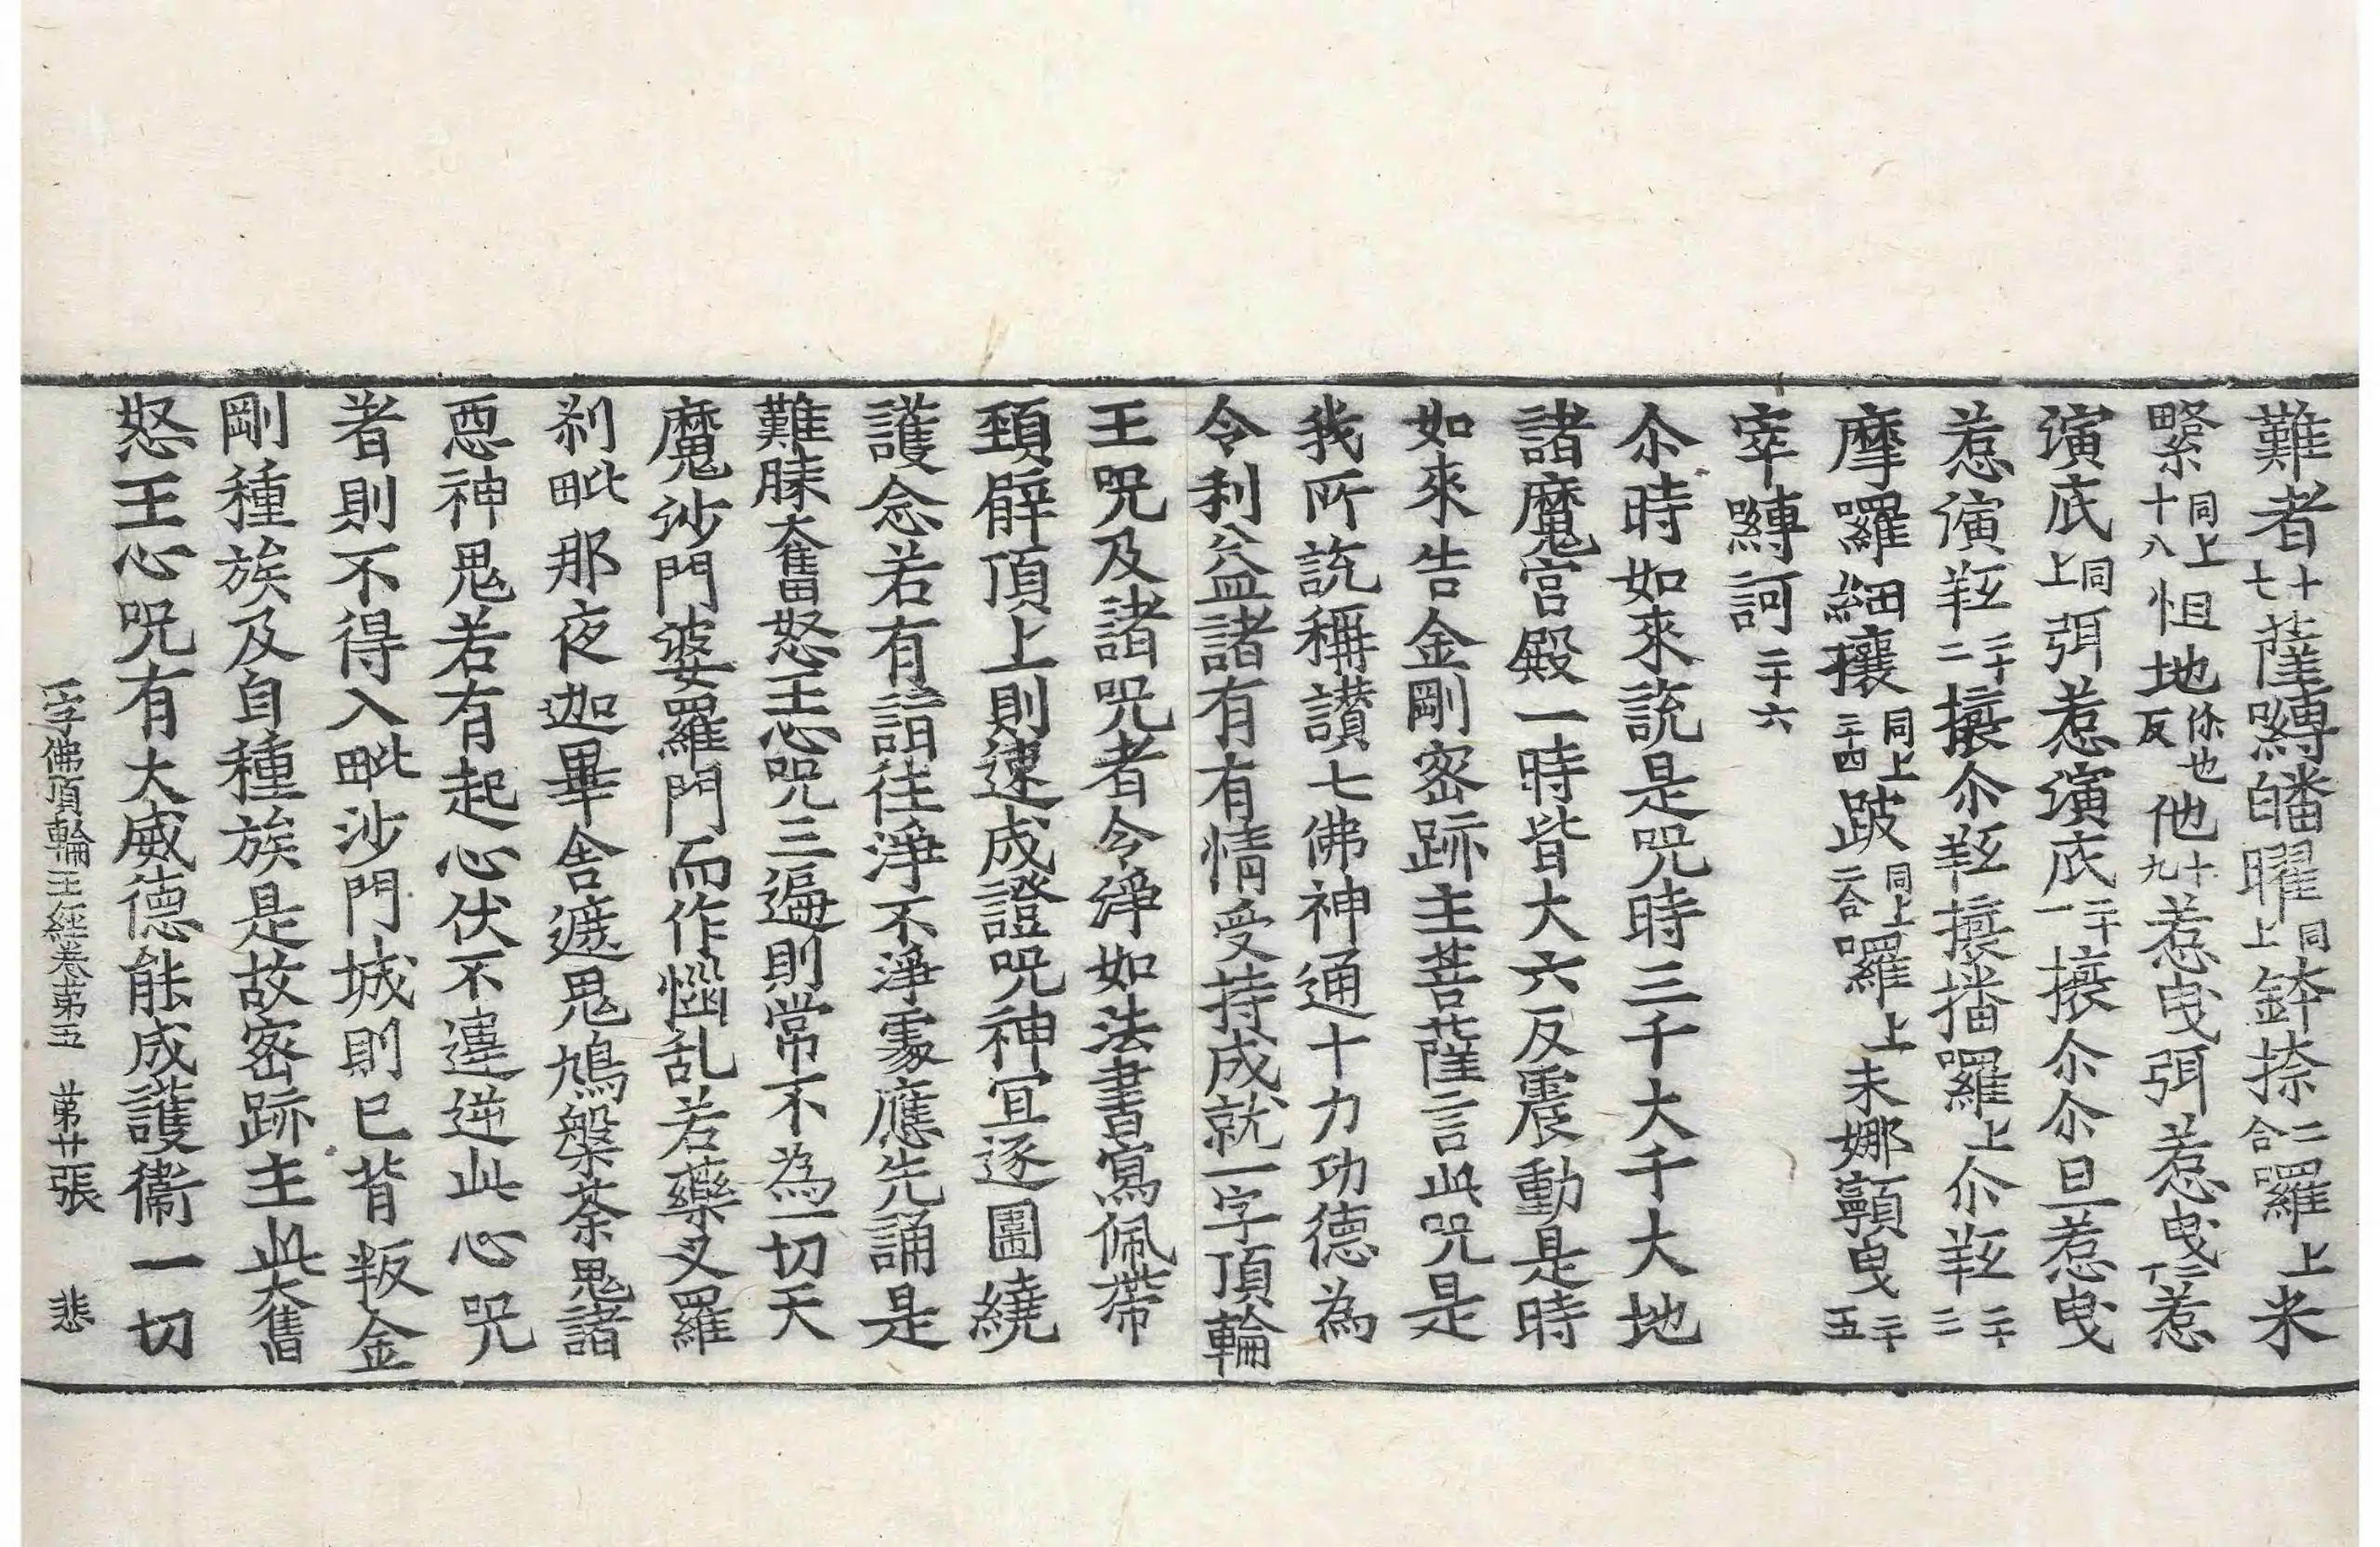 難者十七薩嚩皤曜同上鉢捺二合羅上米
繄同上十八怛地你也反他十九惹曳弭惹曳二十惹
演底同上弭惹演底二十一攘尒尒旦惹曳
惹演羝二十二攘尒羝攘播羅上尒羝二十三
摩囉細攘同上二十四跛同上二合囉上未娜顙曳二十五
窣嚩訶二十六
尒時如來說是呪時三千大千大地
諸魔宮殿一時皆大六反震動是時
如來告金剛密跡主菩薩言此呪是
我所說稱讃七佛神通十力功德為
令利益諸有有情受持成就一字頂輪
王呪及諸呪者令淨如法書寫佩帶
頚臂頂上則速成證呪神冝逐圖繞
護念若有詣往淨不淨處應先誦是
難勝大奮怒王心呪三遍則常不為一切天
魔沙門婆羅門而作惱乱若藥叉羅
剎毗那夜迦畢舍遮鬼鳩槃荼鬼諸
惡神鬼若有起心伏不違逆此心呪
者則不得入毗沙門城則已背叛金
剛種族及自種族是故密跡主此大奮
怒王心呪有大威德能成護衞一切
一字佛頂輪王經卷第五　第廿張　悲